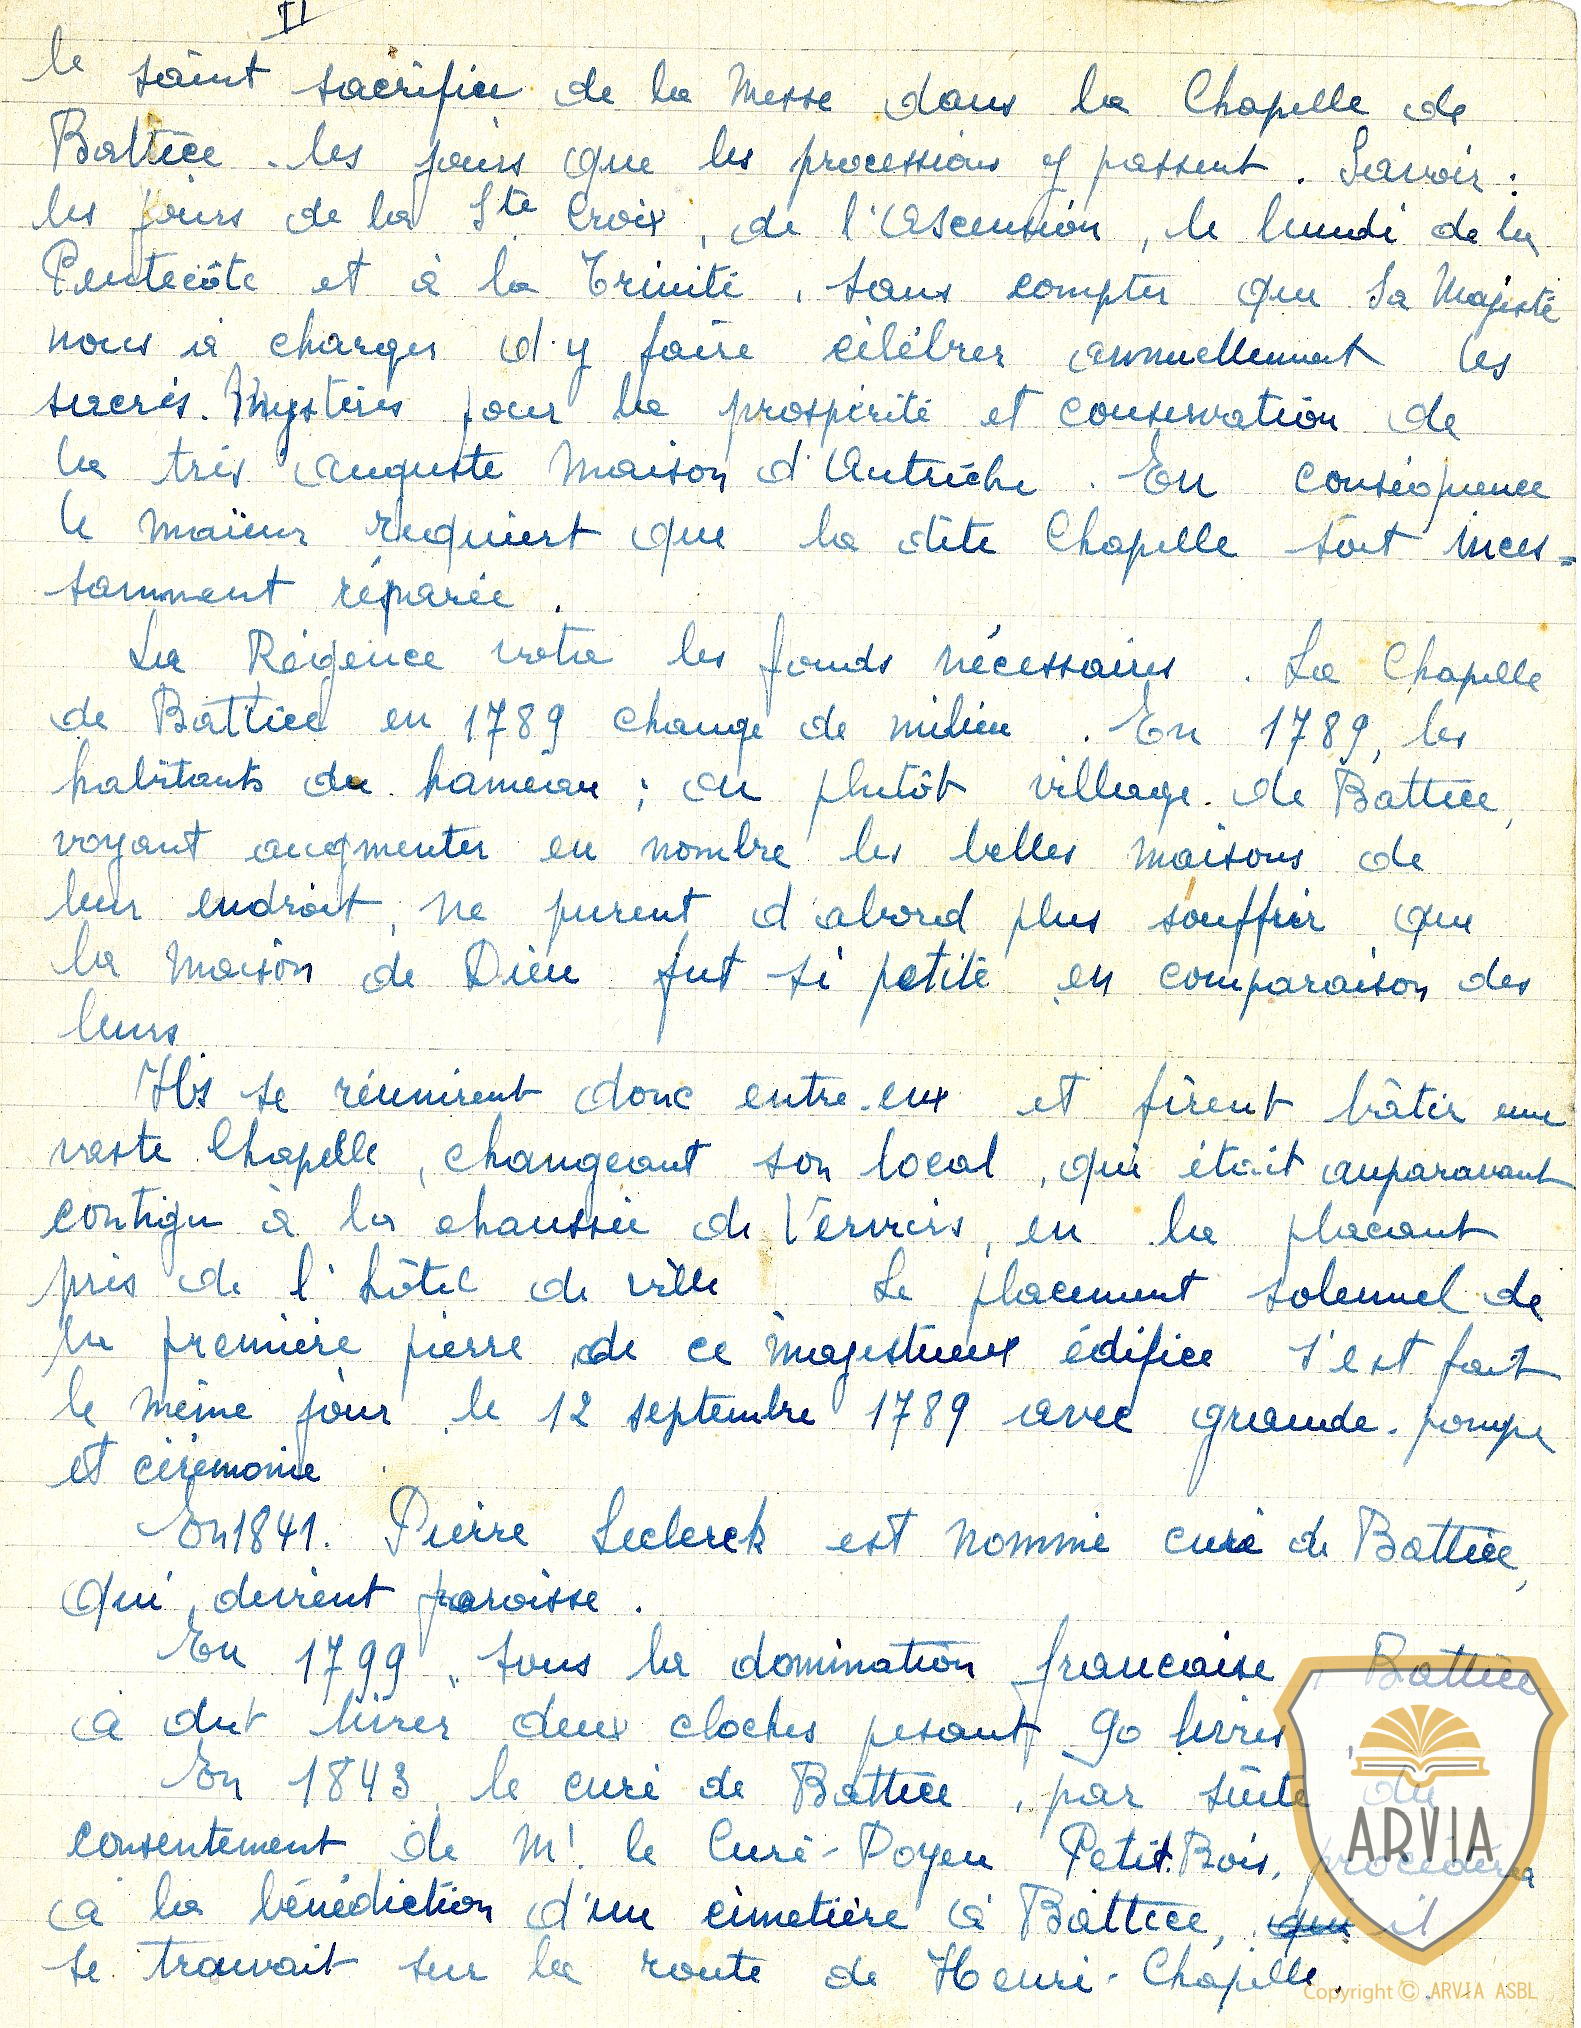 II
le saint sacrifice de la Messe dans la Chapelle de
Battice. les jours que les processions y passent. Savoir :
les jours de la Ste Croix, de l'Ascension, le lundi de la
Pentecôte et à la Trinité, sans compter que Sa Majesté
nous à charges d'y faire célébrer annuellement les
sacrés. Mystères pour la prospérité et conservation de
la très auguste Maison d'Autriche. En conséquence
le maïeur requiert que la dite Chapelle soit inces=
samment réparée.
La Régence vota les fonds nécessaires. La Chapelle
de Battice en 1789 change de milieu. En 1789, les
habitants du hameau ; ou plutôt village de Battice,
voyant augmenter en nombre les belles maisons de
leur endroit, ne purent d'abord plus souffrir que
la maison de Dieu fut si petite en comparaison des
leurs
Ils se réunirent donc entre-eux et firent bâtir une
vaste Chapelle, changeant son local, qui était auparavant
contigu à la chaussée de Verviers, en la placant
près de l'hôtel de ville Le placement solennel de
la première pierre de ce majestueux édifice s'est fait
le même jour le 12 septembre 1789 avec grande pompe
et cérémonie
En 1841. Pierre Leclerck est nommé curé de Battice,
qui devient paroisse.
En 1799, sous la domination francaise, Battice
a dut livrer deux cloches pesant 90 livres,
En 1843, le curé de Battice, par suite du
consentement de Mr. le Curé-Doyen Petit.Bois, procédera
à la bénédiction d'un cimetière à Battice, qui il
se trouvait sur la route de Henri-Chapelle.
ARVIA
Copyright © ARVIA ASBL